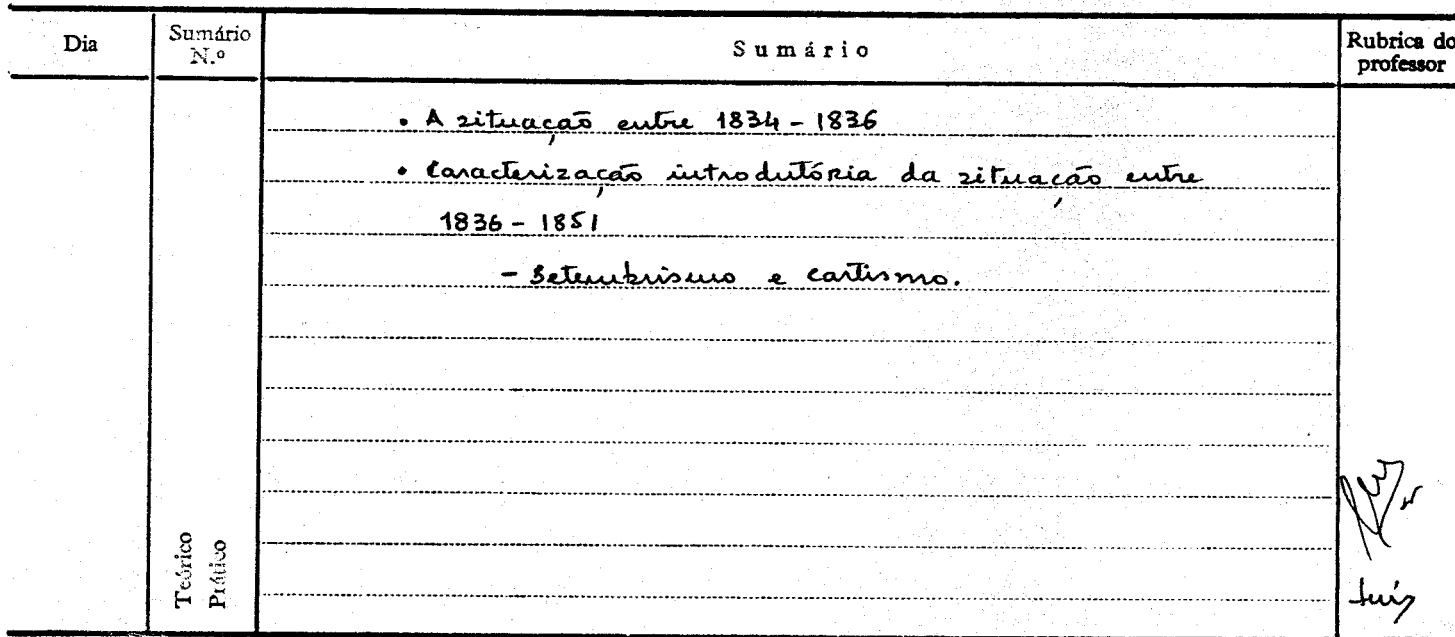 Dia
Sumário N.º
Sumário
Rubrica do professor
• A situação entre 1834 - 1836
• Caracterização introdutória da situação entre
1836 - 1851
- Setembrismo e cartismo.
Teórico
Prático
Luís